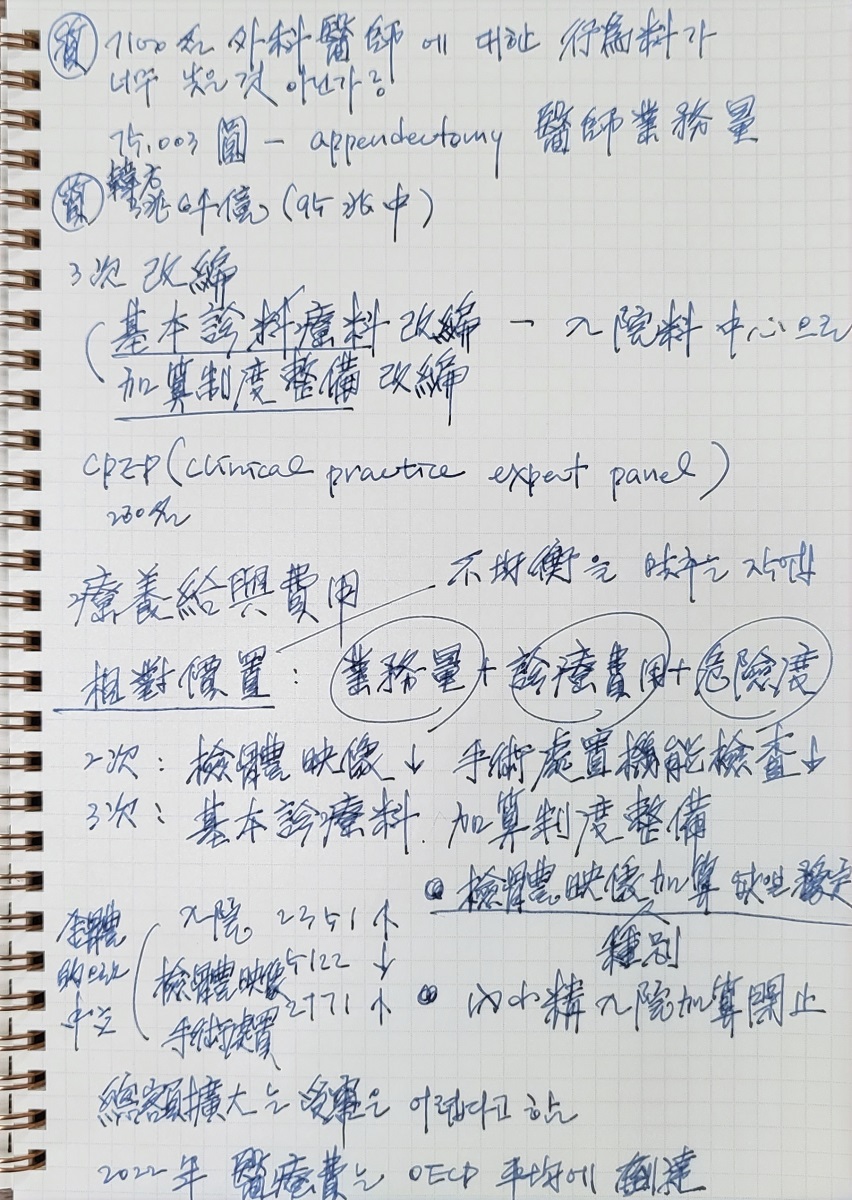 質 7100名 外科醫師에 대한 行爲料가
너무 낮은 것 아닌가?
75,003圓 - appendectomy 醫師業務量
質 韓方
3兆 6千億 (95兆中)
3次 改編
基本診料療料 改編 - 入院料 中心으로
加算制度整備 改編
CPEP (clinical practice expert panel)
230名
療養給與費用
不均衡을 맞추는 작업
相對價置 : 業務量 + 診療費用 + 危險度
2次 : 檢體 映像 ↓ 手術 處置 機能檢査 ↓
3次 : 基本診療料. 加算制度整備
檢體 映像 加算
種別
全體的으로
入院 2351 ↑
檢體 映像 5122 ↓
手術 處置 2771 ↑
內 小 精 入院加算 閉止
總額擴大는 어렵다고 함
2022年 醫療費는 OECD 平均에 到達